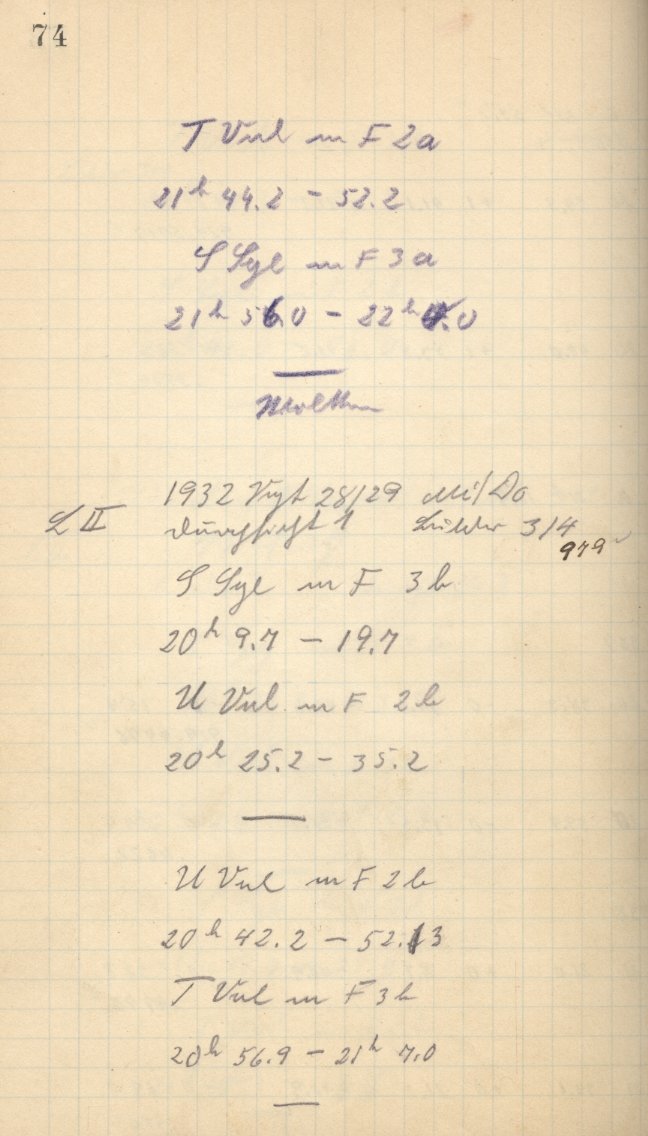 74
T Vul m F 2a
21h 44.2 – 52.2
S Sge m F 3a
21h 56.0 – 22h 0
Wolken
1932 Sept 28/29 Mi/Do
L II Durchsicht 1 Bilder 3/4
979
S Sge m F 3b
20h 9.7 – 19.7
U Vul m F 2b
20h 25.2 – 35.2
U Vul m F 2b
20h 42.2 – 52.3
T Vul m F 3b
20h 56.9 – 21h 7.0